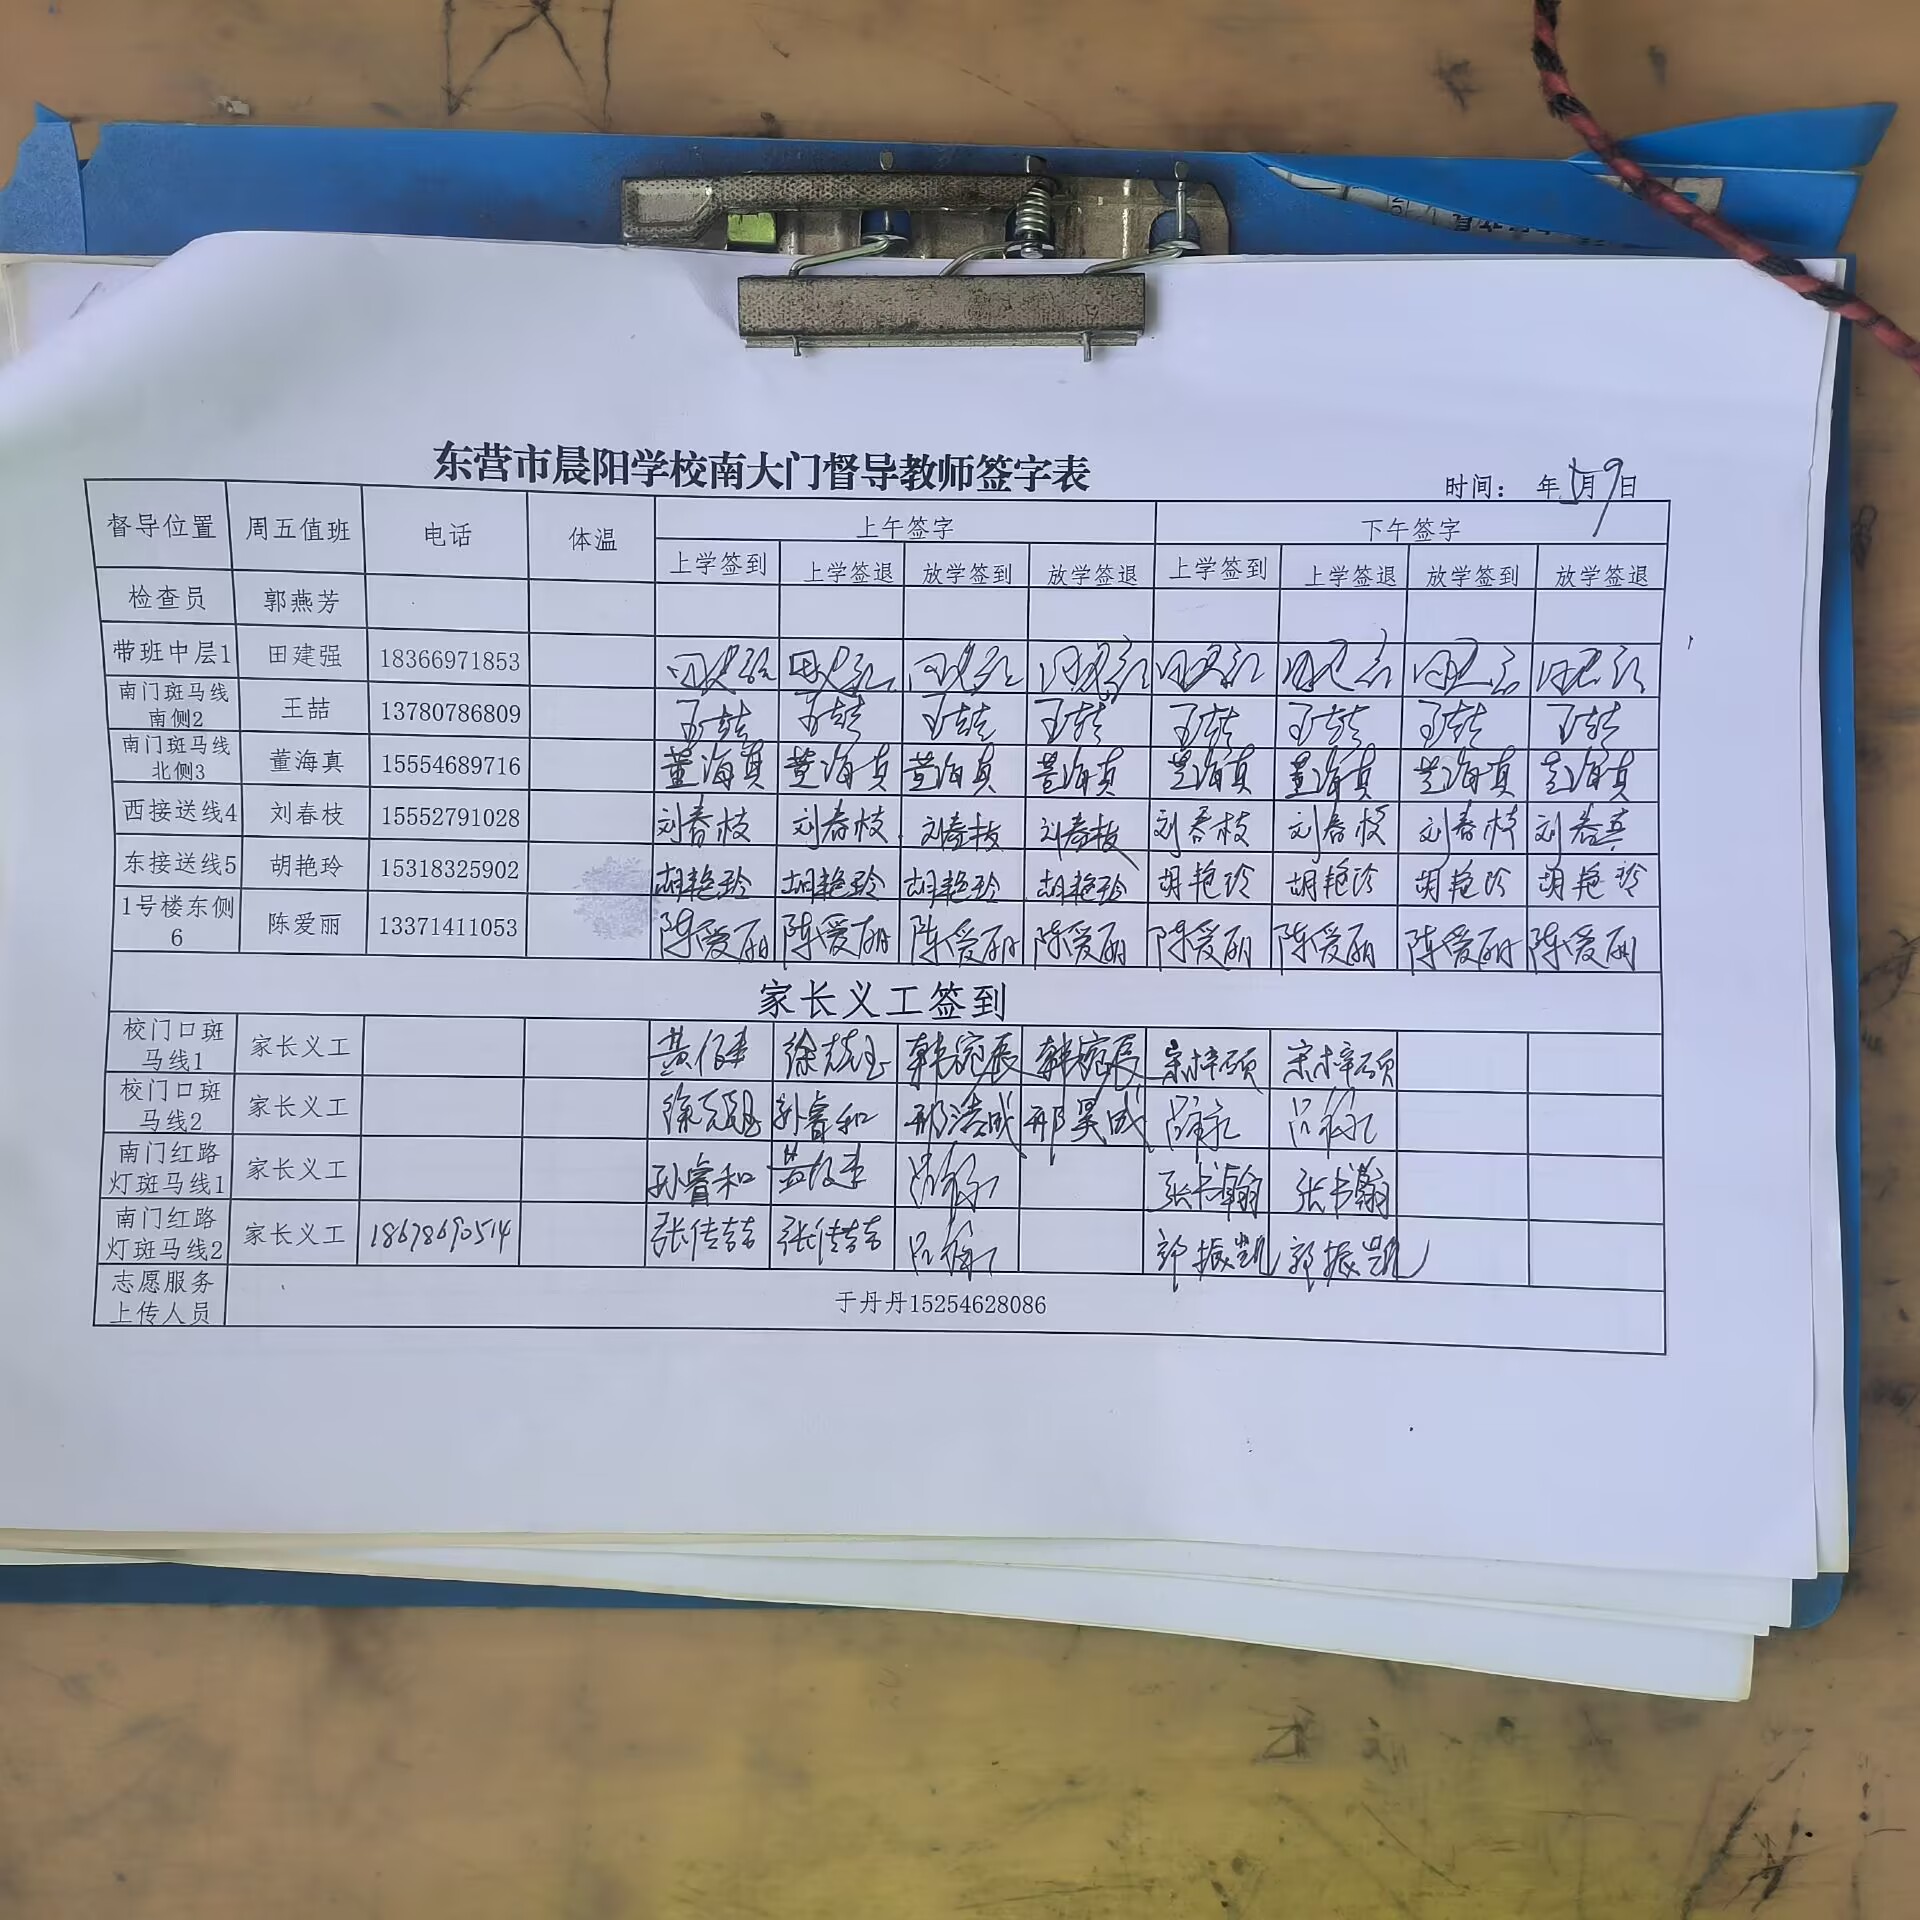 东营市晨阳学校南大门督导教师签字表
时间： 年5月9日
督导位置 周五值班 电话 体温 上午签字 下午签字
上学签到 上学签退 放学签到 放学签退 上学签到 上学签退 放学签到 放学签退
检查员 郭燕芳
带班中层1 田建强 18366971853 田建强 田建强 田建强 田建强 田建强 田建强 田建强 田建强
南门斑马线南侧2 王喆 13780786809 王喆 王喆 王喆 王喆 王喆 王喆 王喆 王喆
南门斑马线北侧3 董海真 15554689716 董海真 董海真 董海真 董海真 董海真 董海真 董海真 董海真
西接送线4 刘春枝 15552791028 刘春枝 刘春枝 刘春枝 刘春枝 刘春枝 刘春枝 刘春枝
东接送线5 胡艳玲 15318325902 胡艳玲 胡艳玲 胡艳玲 胡艳玲 胡艳玲 胡艳玲 胡艳玲 胡艳玲
1号楼东侧6 陈爱丽 13371411053 陈爱丽 陈爱丽 陈爱丽 陈爱丽 陈爱丽 陈爱丽 陈爱丽 陈爱丽
家长义工签到
校门口斑马线1 家长义工 宋梓硕 宋梓硕
校门口斑马线2 家长义工 孙睿和 邢浩成 邢昊成
南门红路灯斑马线1 家长义工 孙睿和 张书翰 张书翰
南门红路灯斑马线2 家长义工 18678690514 张传吉 张传吉 郭振凯 郭振凯
志愿服务上传人员 于丹丹15254628086